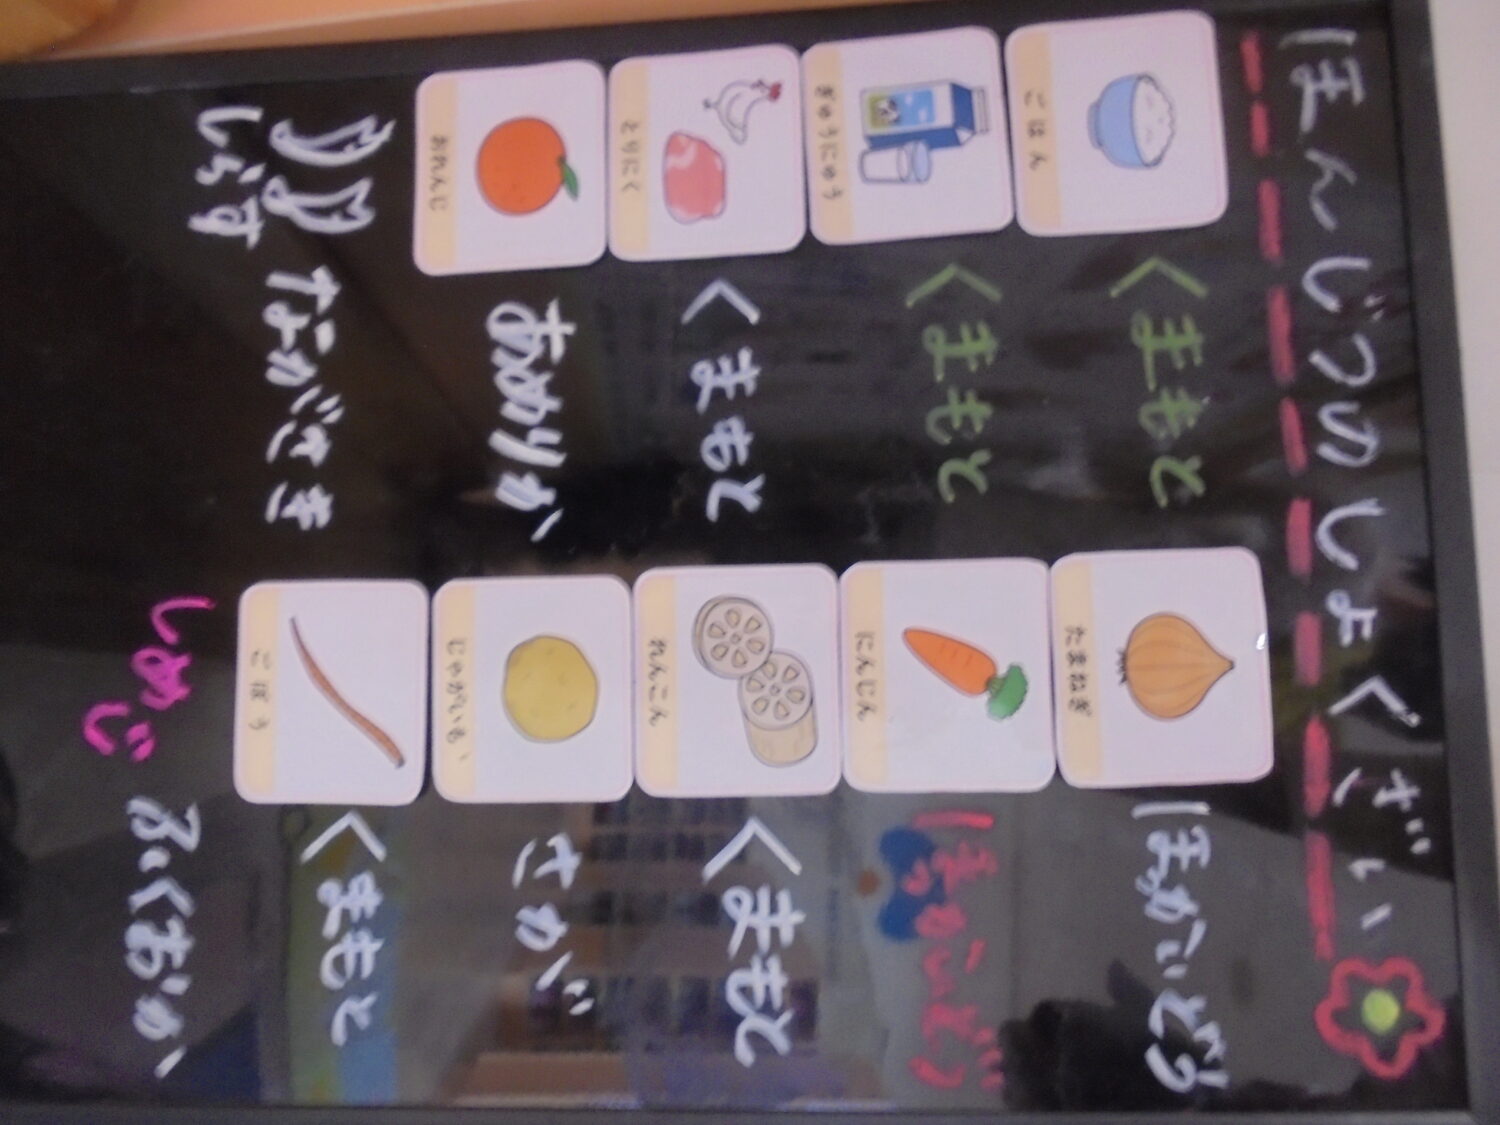 ほんじつのしょくざい
ごはん くまもと
ぎゅうにゅう くまもと
とりにく くまもと
おれんじ あめりか
しらす ながさき
たまねぎ ほっかいどう
にんじん ほっかいどう
れんこん くまもと
じゃがいも さが
ごぼう くまもと
しめじ ふくおか